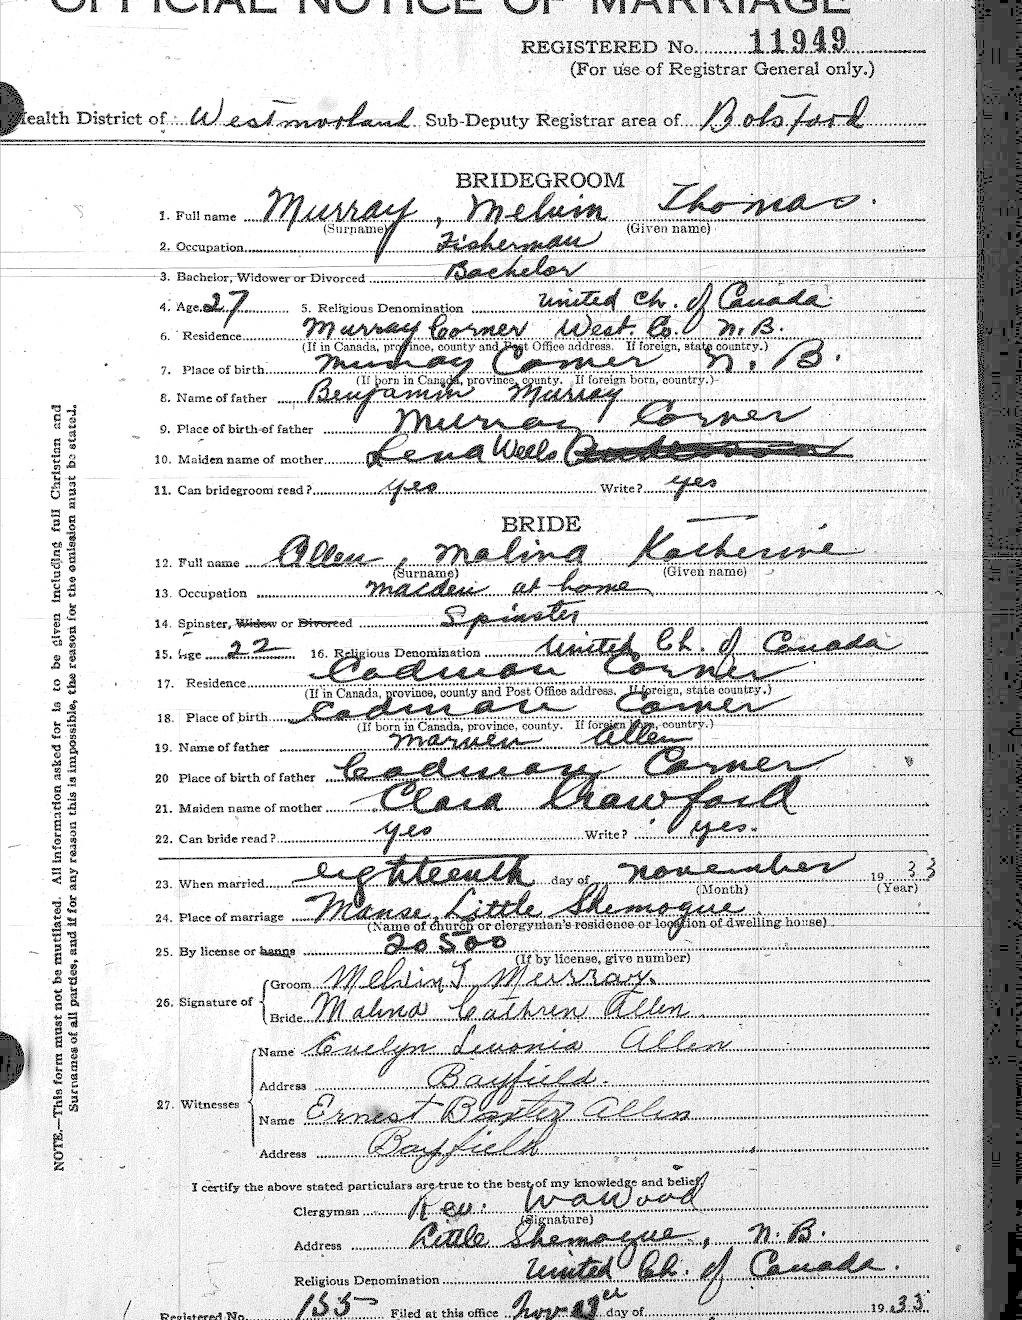 OFFICIAL NOTICE OF MARRIAGE
REGISTERED No. 11949
(For use of Registrar General only.)
Health District of Westmorland Sub-Deputy Registrar area of Botsford
BRIDEGROOM
1. Full name Murray, Melvin Thomas.
(Surname) (Given name)
2. Occupation Fisherman
3. Bachelor, Widower or Divorced Bachelor
4. Age 27 5. Religious Denomination United Ch. of Canada
6. Residence Murray Corner West. Co. N.B.
(If in Canada, province, county and Post Office address. If foreign, state country.)
7. Place of birth Murray Corner N.B.
(If born in Canada, province, county. If foreign born, country.)
8. Name of father Benjamin Murray
9. Place of birth of father Murray Corner
10. Maiden name of mother Lena Wells
11. Can bridegroom read? yes Write? yes
BRIDE
12. Full name Allen, Malina Katherine
(Surname) (Given name)
13. Occupation maiden at home
14. Spinster, Widow or Divorced Spinster
15. Age 22 16. Religious Denomination United Ch. of Canada
17. Residence Cadman Corner
(If in Canada, province, county and Post Office address. If foreign, state country.)
18. Place of birth Cadman Corner
(If born in Canada, province, county. If foreign born, country.)
19. Name of father Marven Allen
20 Place of birth of father Cadman Corner
21. Maiden name of mother Clara Crawford
22. Can bride read? yes Write? yes.
23. When married eighteenth day of november 1933
(Month) (Year)
24. Place of marriage Manse, Little Shemogue
(Name of church or clergyman's residence or location of dwelling house)
25. By license or banns 20500
(If by license, give number)
26. Signature of
Groom Melvin T Murray.
Bride Malina Cathren Allen
27. Witnesses
Name Evelyn Livonia Allen
Address Bayfield.
Name Ernest Baxter Allen
Address Bayfield
I certify the above stated particulars are true to the best of my knowledge and belief.
Clergyman Rev. W A Wood
(Signature)
Address Little Shemogue, N.B.
Religious Denomination United Ch. of Canada.
Registered No. 155 Filed at this office Nov day of 1933
NOTE.—This form must not be mutilated. All information asked for is to be given including full Christian and
Surnames of all parties, and if for any reason this is impossible, the reason for the omission must be stated.